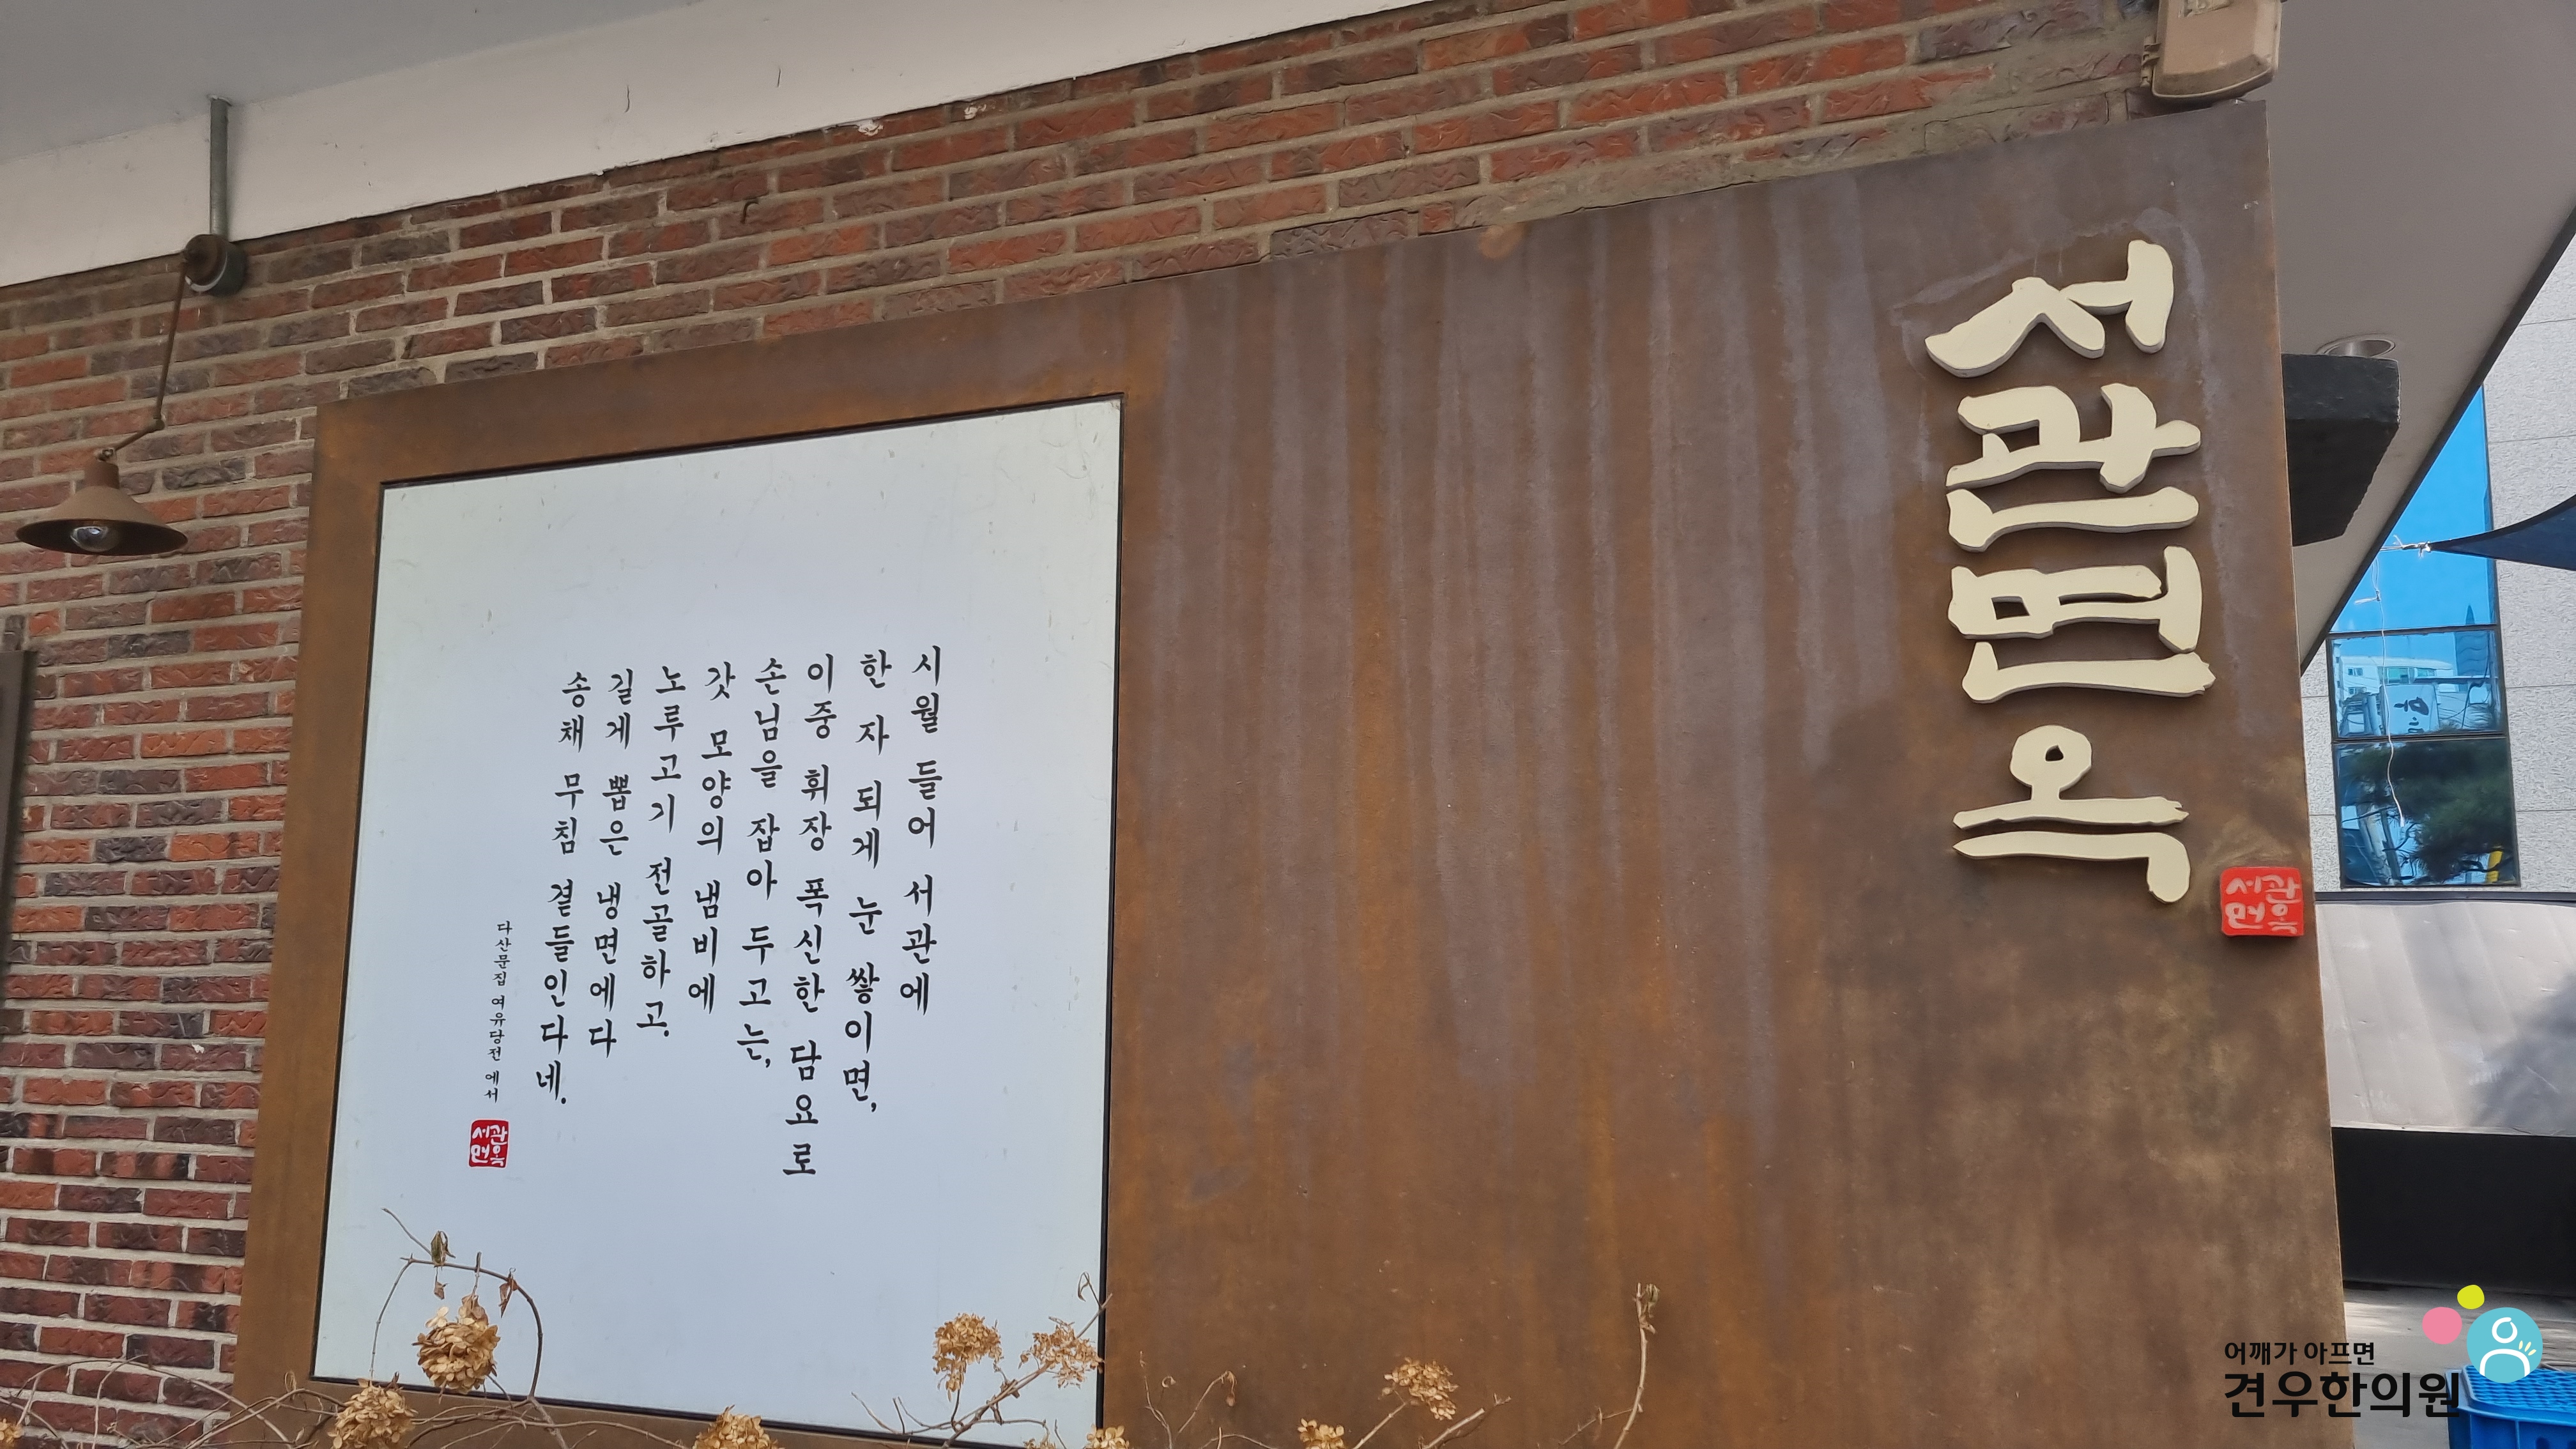 시월 들어 서관에
한 자 되게 눈 쌓이면,
이중 휘장 폭신한 담요로
손님을 잡아 두고는,
갓 모양의 냄비에
노루고기 전골하고,
길게 뽑은 냉면에다
송채 무침 곁들인다네.
다산문집 여유당전 에서
서관
면옥
서관면옥
서관
면옥
어깨가 아프면
견우한의원